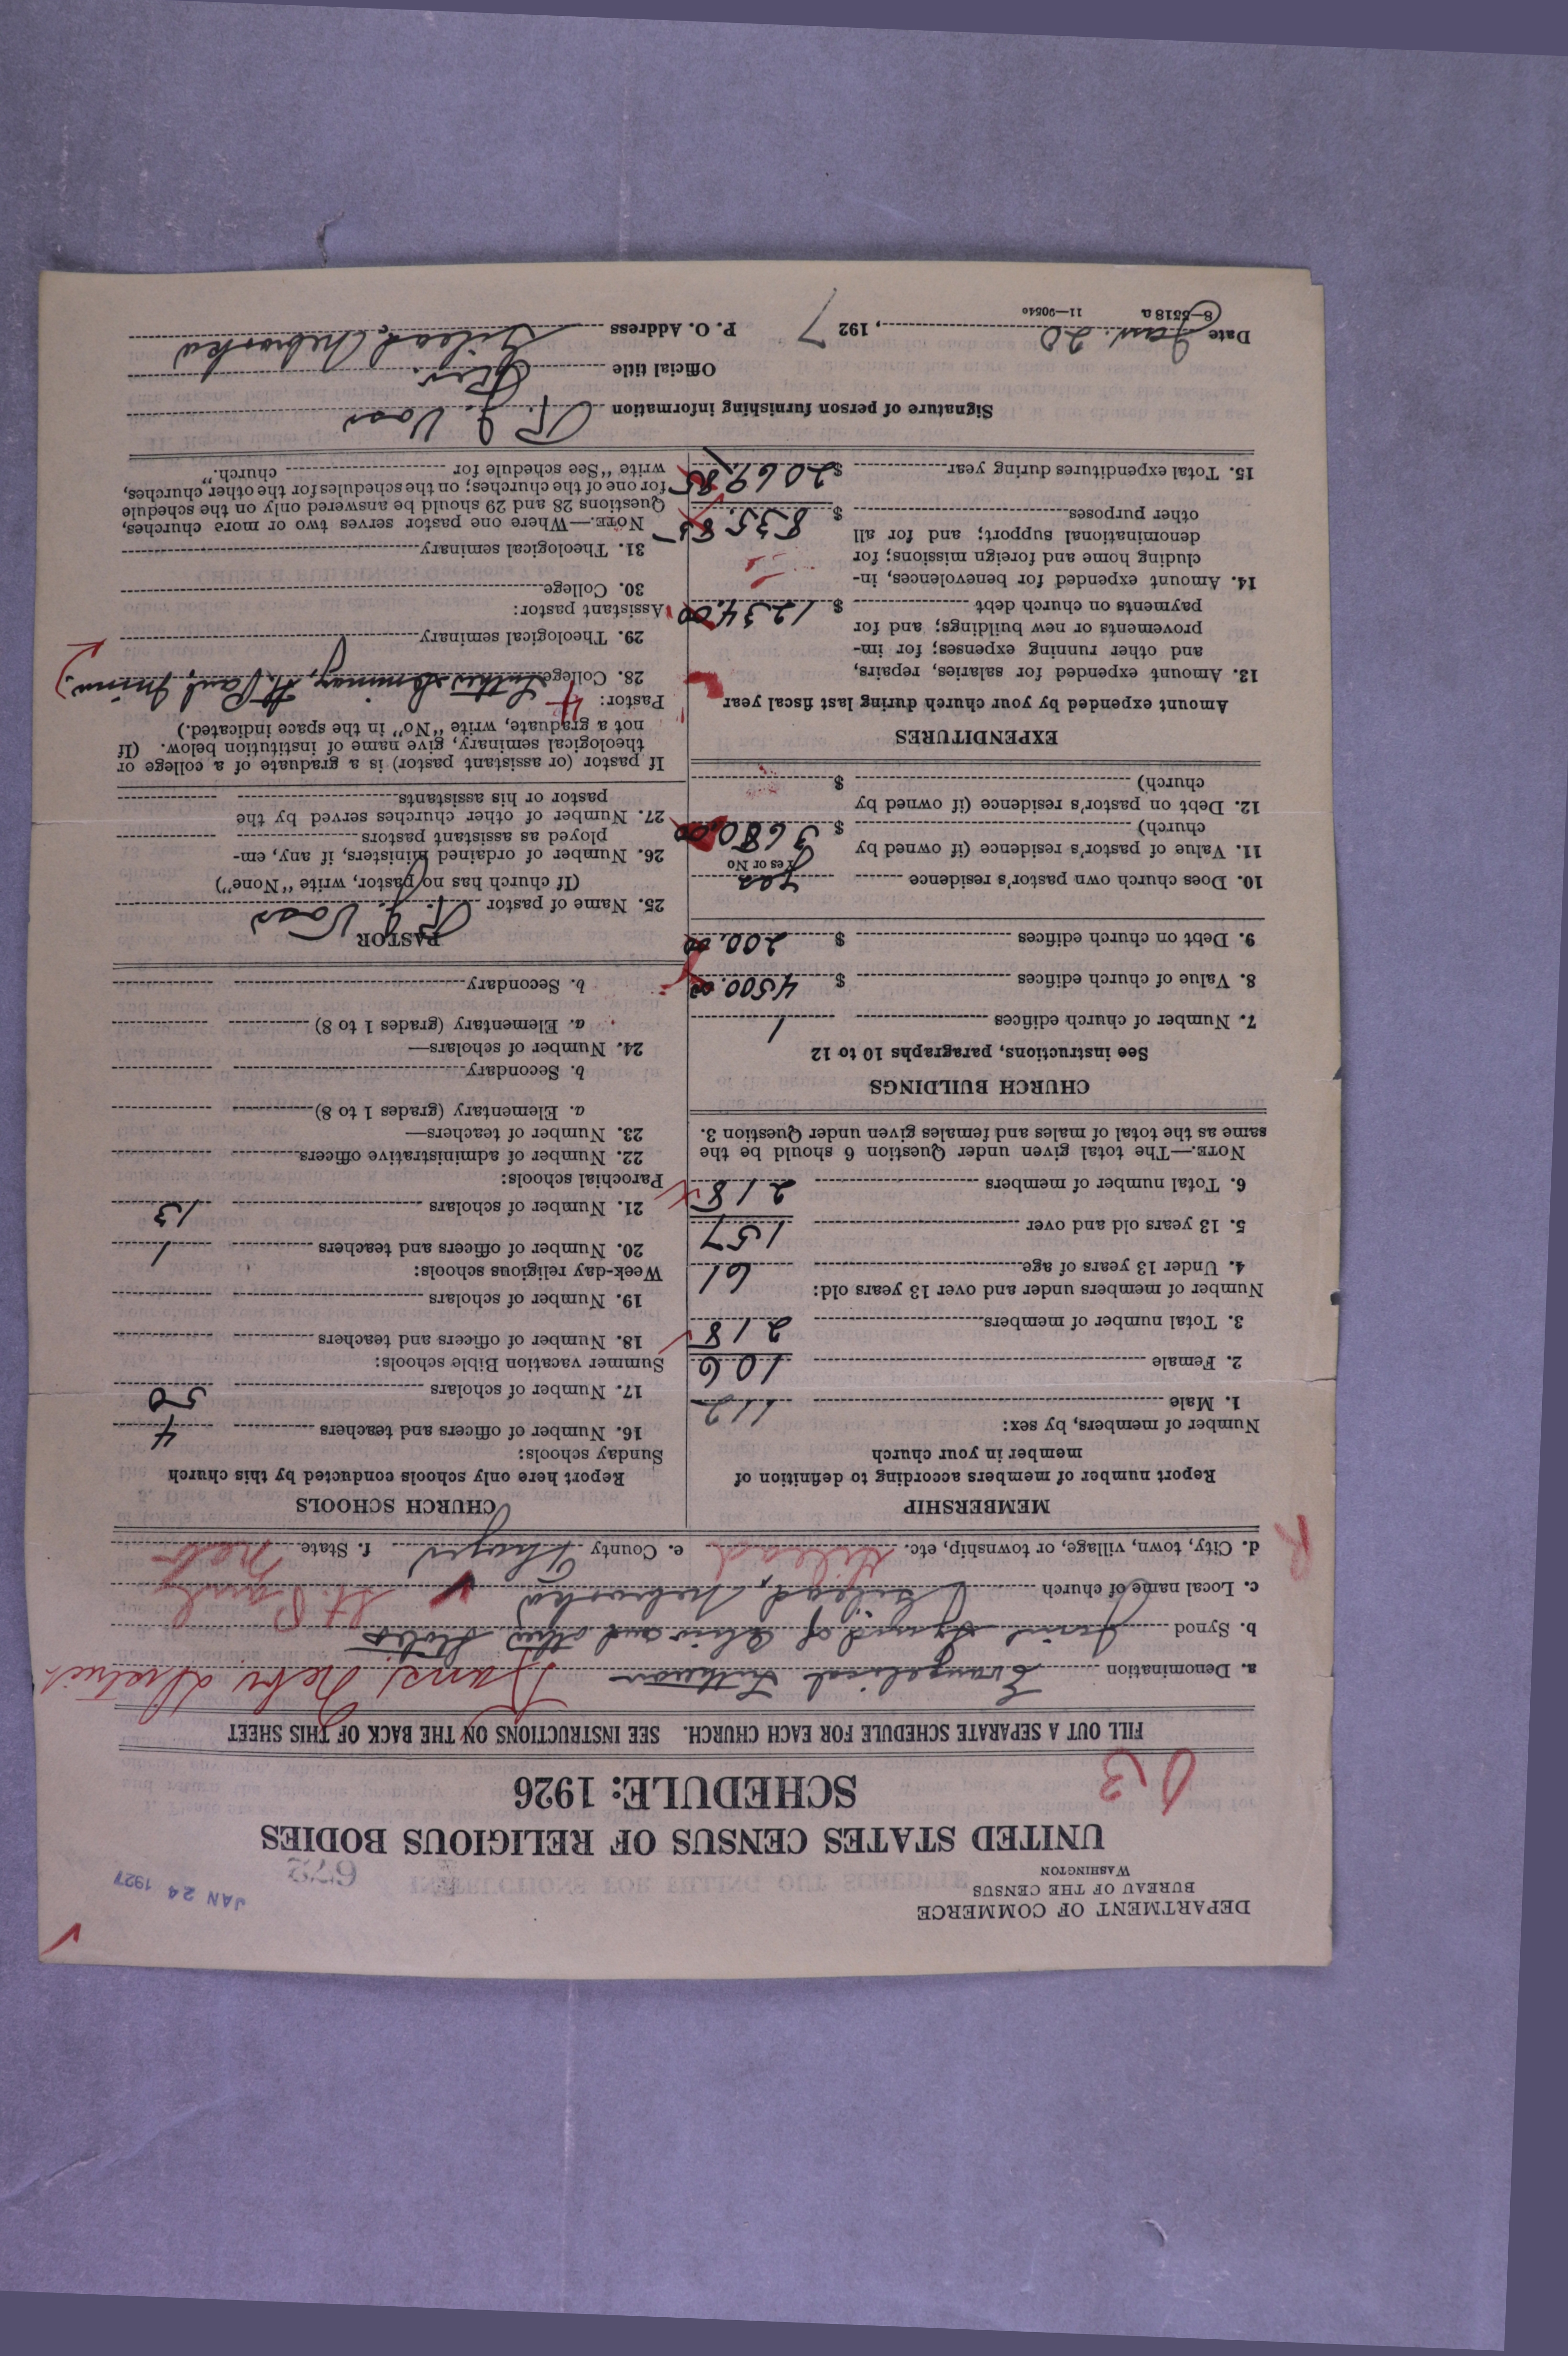 DEPARTMENT OF COMMERCE
BUREAU OF THE CENSUS
WASHINGTON
JAN 24 1927
UNITED STATES CENSUS OF RELIGIOUS BODIES
SCHEDULE: 1926
FILL OUT A SEPARATE SCHEDULE FOR EACH CHURCH. SEE INSTRUCTIONS ON THE BACK OF THIS SHEET
a. Denomination Evangelical Lutheran Kans, Nebr. District
b. Synod Joint Synod of Ohio and other States
c. Local name of church Gilead, Nebraska St. Paul
d. City, town, village, or township, etc. Gilead e. County Thayer f. State Nebr
MEMBERSHIP
Report number of members according to definition of
member in your church
Number of members, by sex:
1. Male 112
2. Female 106
3. Total number of members 218
Number of members under and over 13 years old:
4. Under 13 years of age 61
5. 13 years old and over 157
6. Total number of members 218
NOTE.—The total given under Question 6 should be the
same as the total of males and females given under Question 3.
CHURCH BUILDINGS
See instructions, paragraphs 10 to 12
7. Number of church edifices 1
8. Value of church edifices $ 4500.00
9. Debt on church edifices $ 200.00
10. Does church own pastor's residence yes
Yes or No
11. Value of pastor's residence (if owned by
church) $ 3680.00
12. Debt on pastor's residence (if owned by
church) $
EXPENDITURES
Amount expended by your church during last fiscal year
13. Amount expended for salaries, repairs,
and other running expenses; for im-
provements or new buildings; and for
payments on church debt $ 1234.00
14. Amount expended for benevolences, in-
cluding home and foreign missions; for
denominational support; and for all
other purposes $ 835.85
15. Total expenditures during year $ 2069.85
CHURCH SCHOOLS
Report here only schools conducted by this church
Sunday schools:
16. Number of officers and teachers 4
17. Number of scholars 50
Summer vacation Bible schools:
18. Number of officers and teachers
19. Number of scholars
Week-day religious schools:
20. Number of officers and teachers 1
21. Number of scholars 13
Parochial schools:
22. Number of administrative officers
23. Number of teachers—
a. Elementary (grades 1 to 8)
b. Secondary
24. Number of scholars—
a. Elementary (grades 1 to 8)
b. Secondary
PASTOR
25. Name of pastor Voss
(If church has no pastor, write "None")
26. Number of ordained ministers, if any, em-
ployed as assistant pastors
27. Number of other churches served by the
pastor or his assistants
If pastor (or assistant pastor) is a graduate of a college or
theological seminary, give name of institution below. (If
not a graduate, write "No" in the space indicated.)
Pastor: 4
28. College Luther Seminary, St. Paul, Minn.
29. Theological seminary
Assistant pastor:
30. College
31. Theological seminary
NOTE.—Where one pastor serves two or more churches,
Questions 28 and 29 should be answered only on the schedule
for one of the churches; on the schedules for the other churches,
write "See schedule for church."
Signature of person furnishing information Voss
Official title
Date Jan. 20, 1927 P. O. Address Gilead, Nebraska
8—5518 a 11—9054c